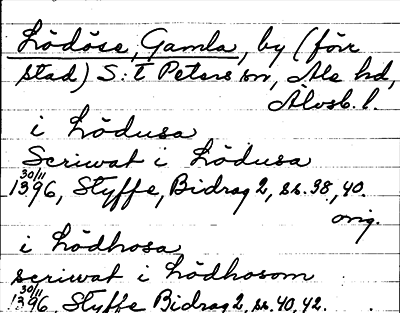 Lödöse, Gamla, by (förr
stad) S:t Peters sn, Ale hd,
Älvsb. l.
i Lödusa
Scriwat i Lödusa
30/11
1396, Styffe, Bidrag 2, ss. 38, 40.
orig.
i Lödhosa
scriwat i Lödhosom
30/11
1396, Styffe Bidrag 2, ss. 40, 42.